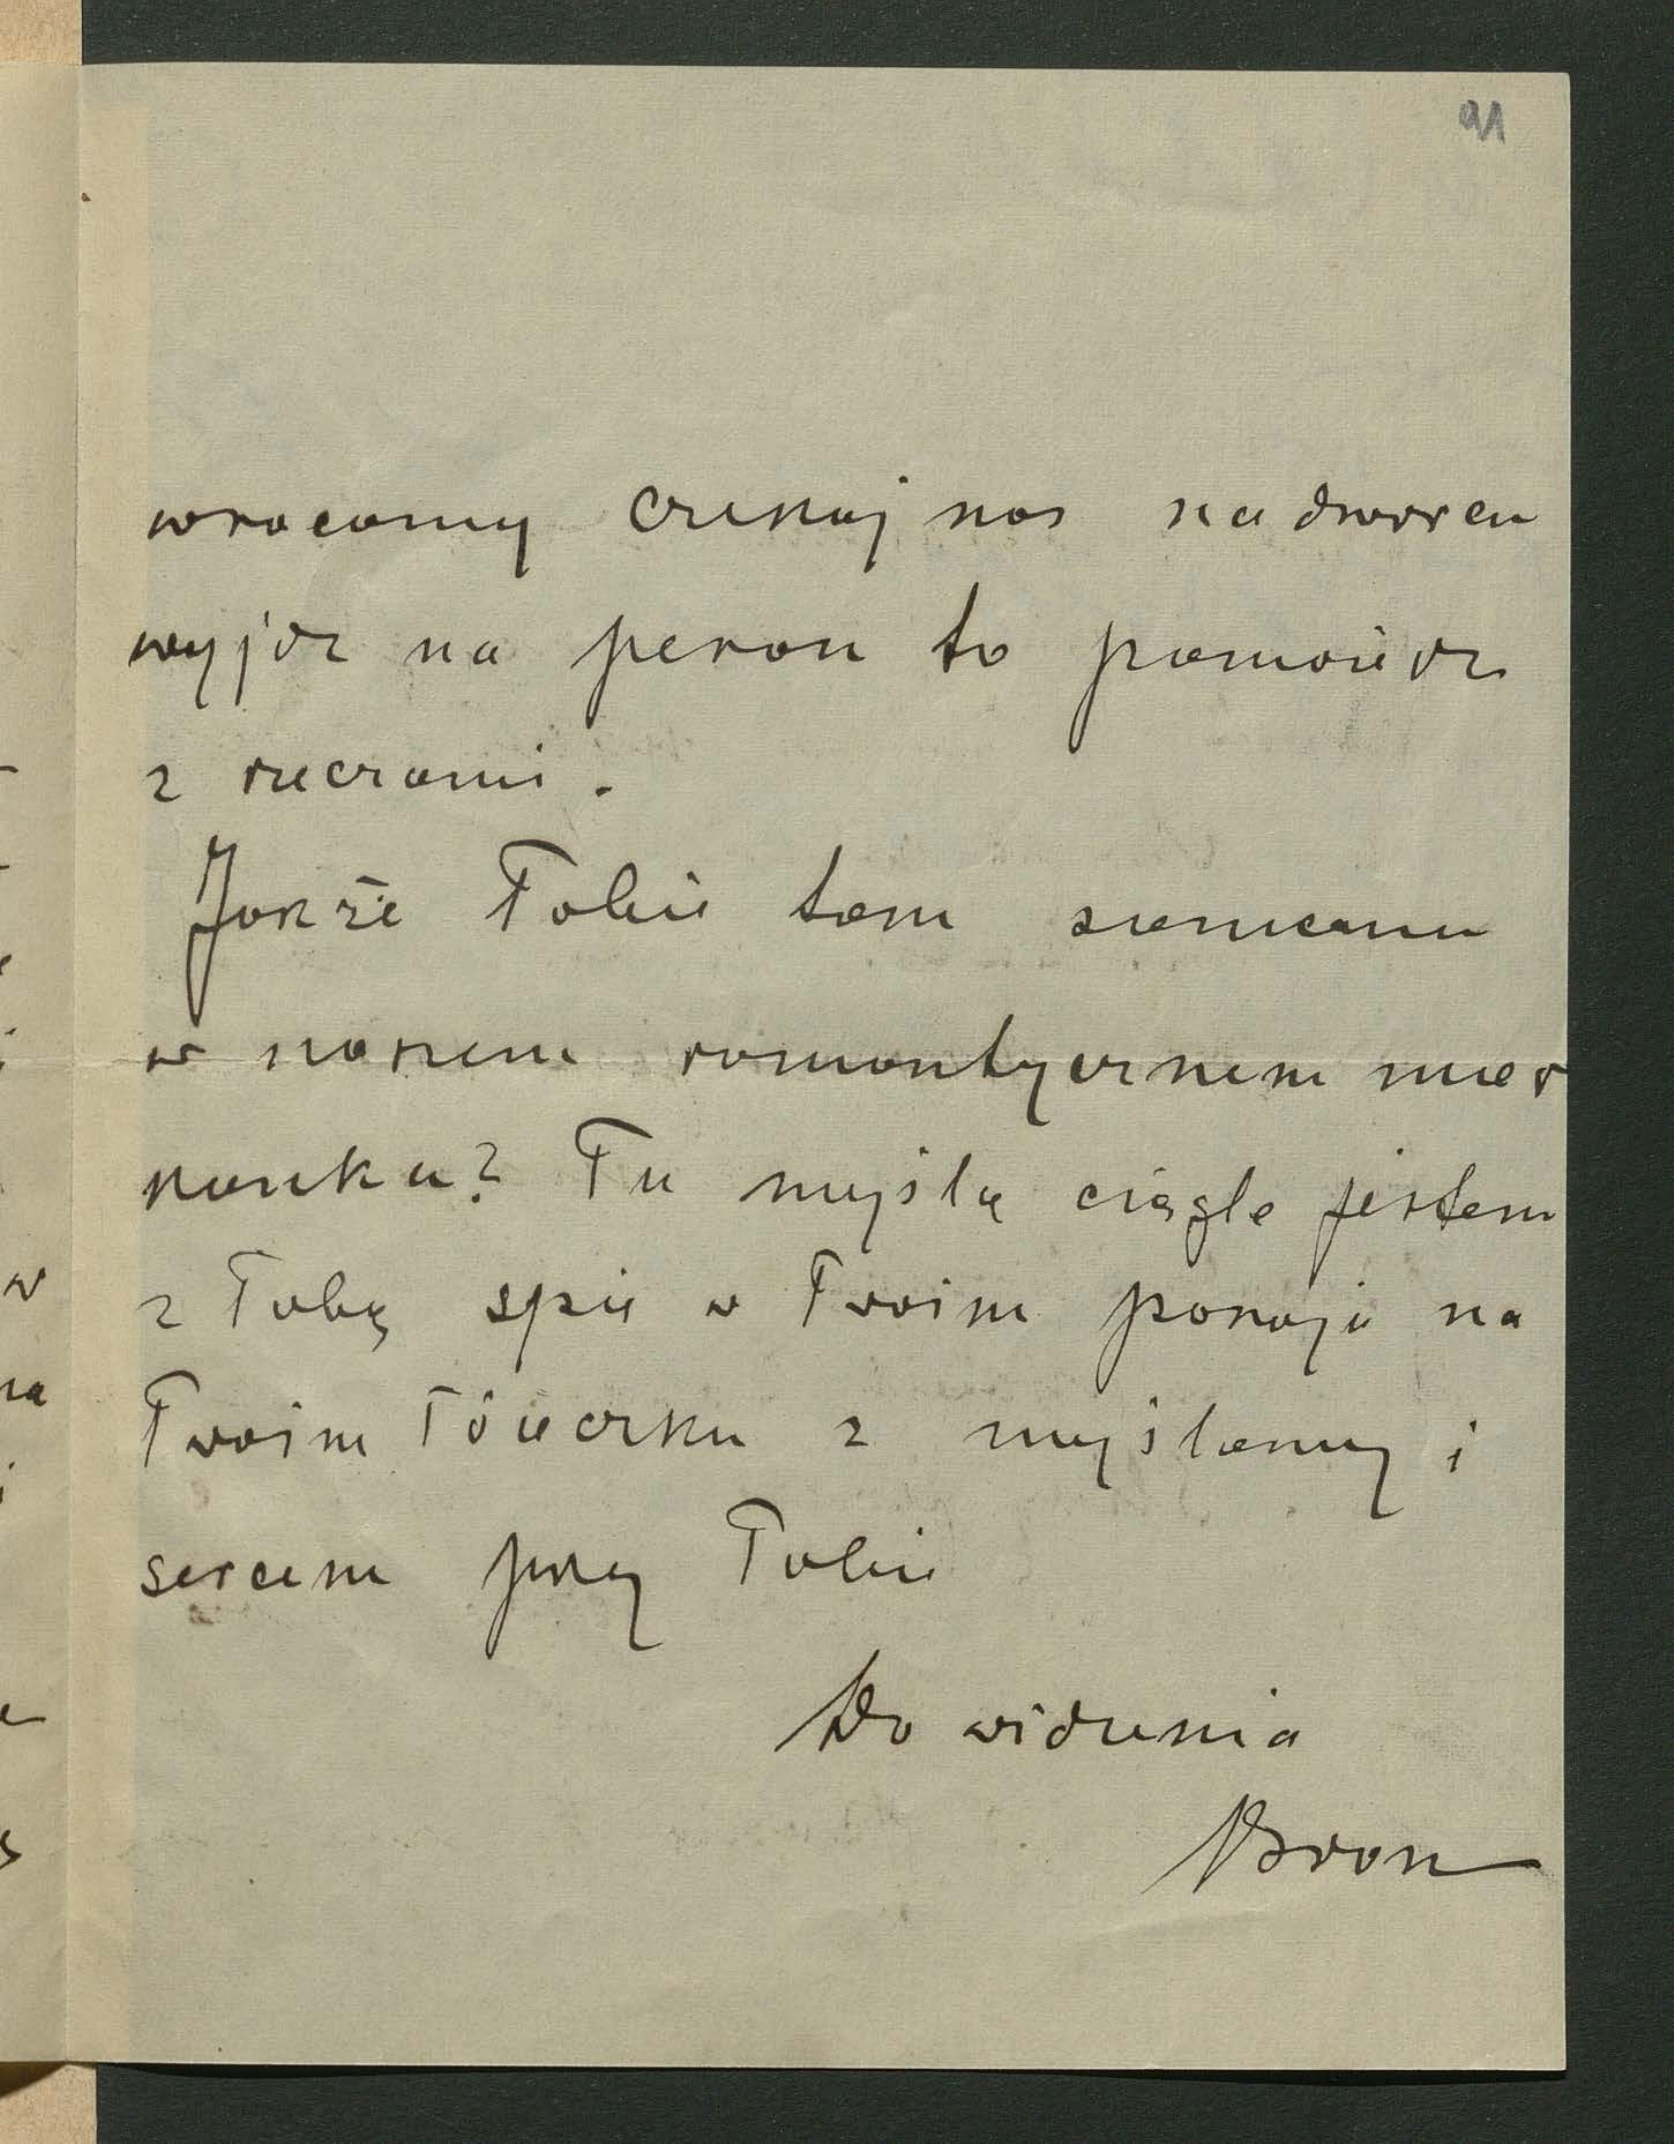 91
wracamy czekaj nas na dworcu
wyjdz na peron to pomożesz
z rzeczami.
Jakże Tobie tam samemu
w naszem romantycznem miesz
kanku? Tu myślą ciągle jestem
z Tobą spie w Twoim pokoju na
Twoim łóżeczku z myślamy i
sercem przy Tobie
Do widzenia
Bron